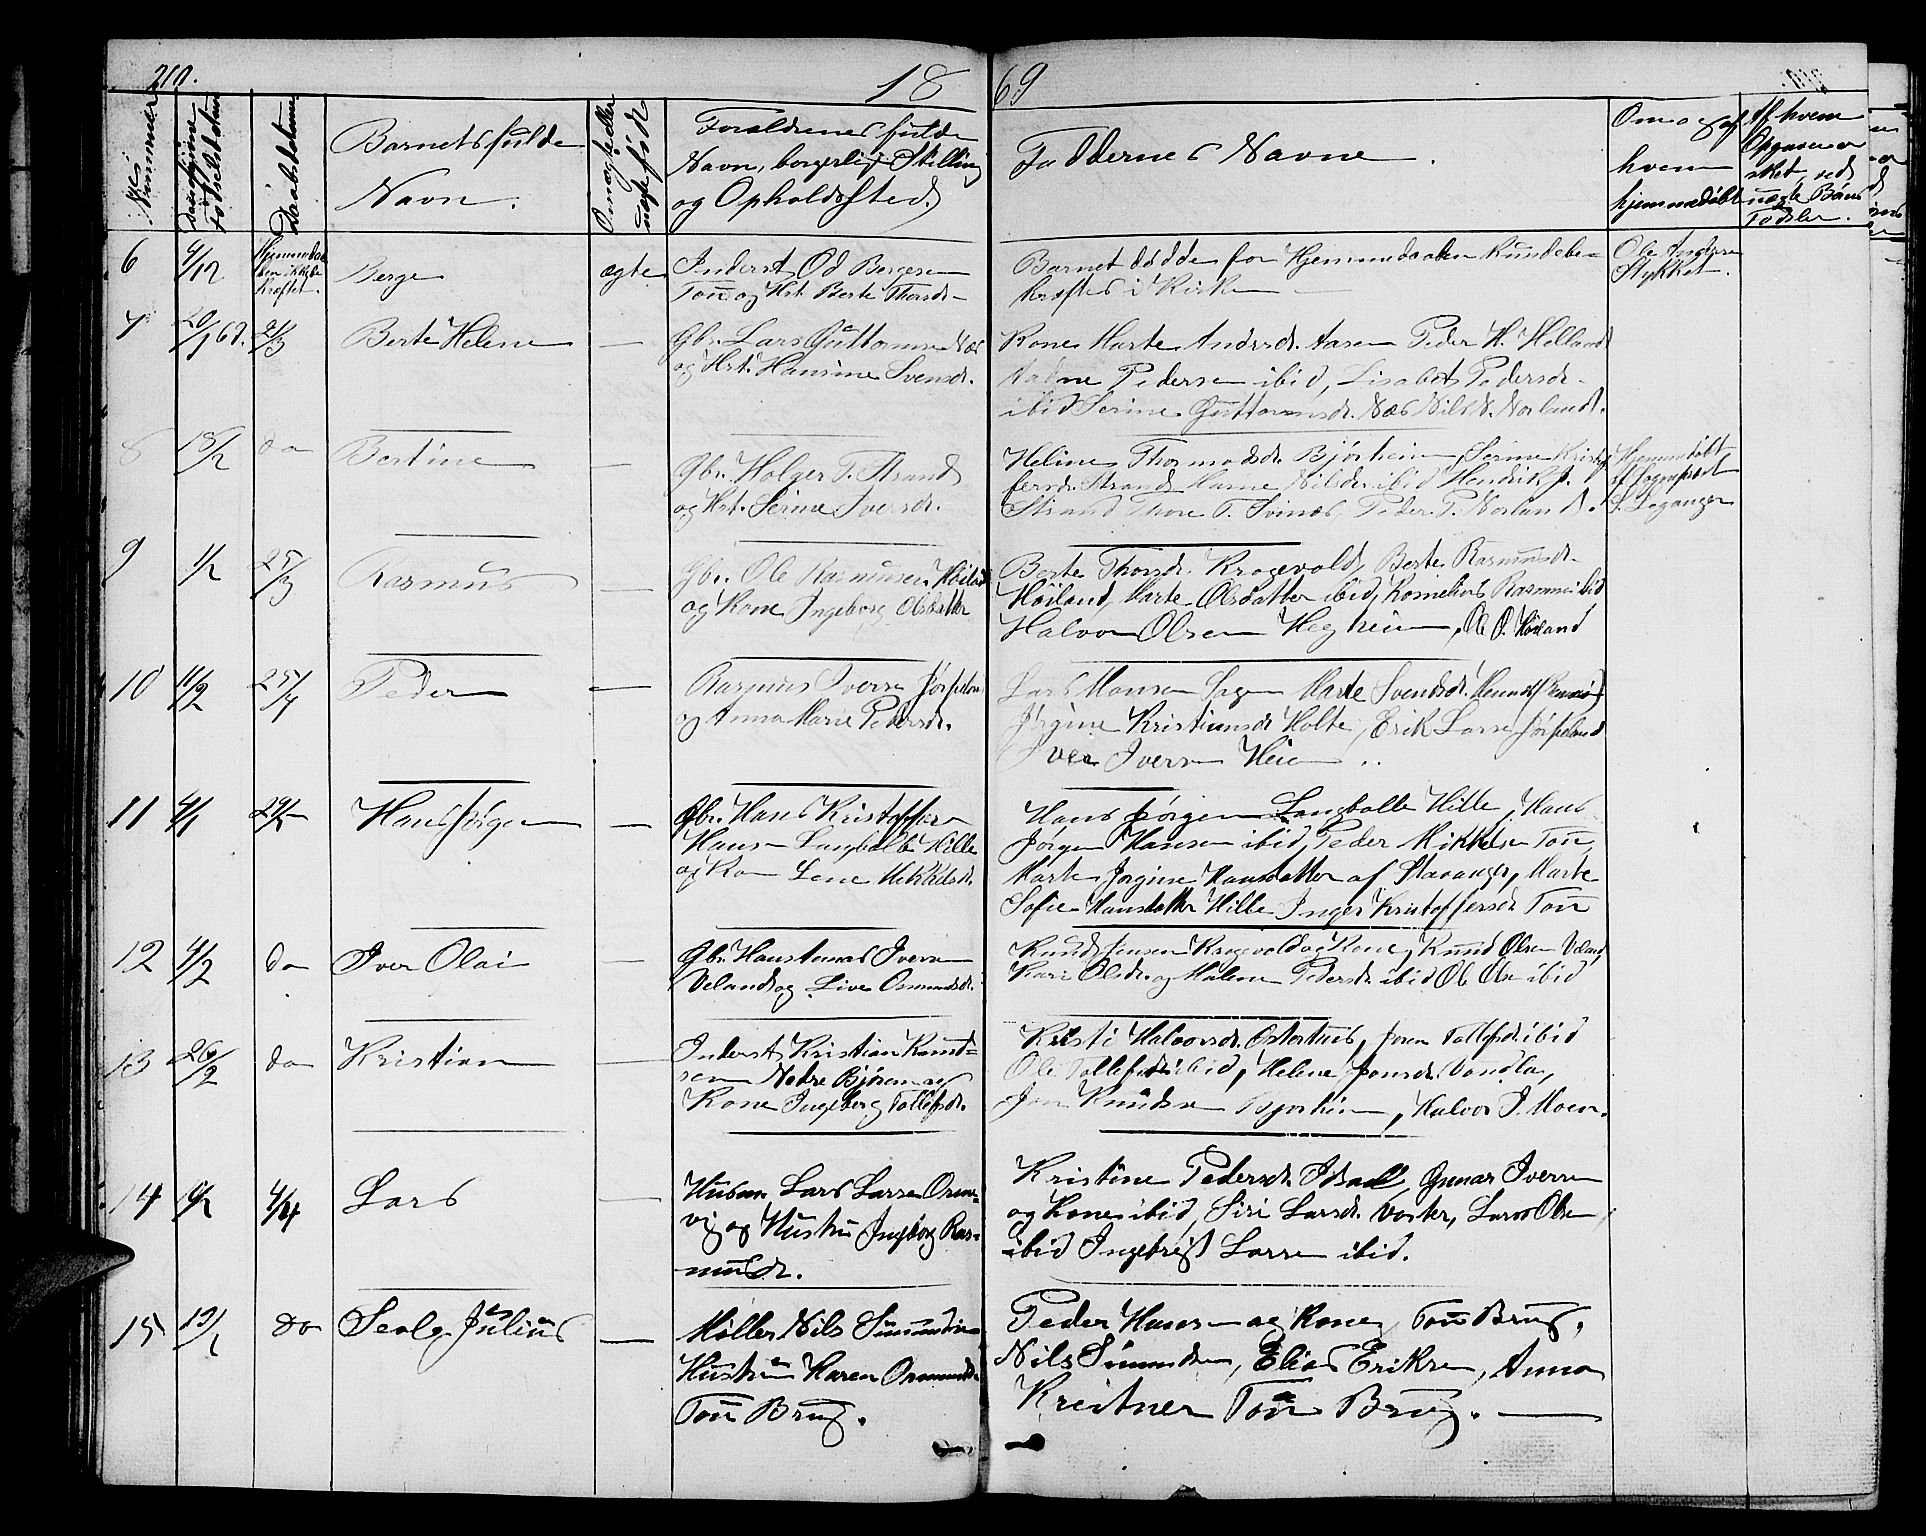 210.
1869
No
Nummer
Barnets fulde
Navn.
Forældrenes fulde
Navn, borgerlig Stilling
og Opholdssted.
Faddernes Navne.
Om og af
hvem
hjemmedøbt
Af hvem
sket ved
uægte Børns
Fødsler.
6
4/12
Berge
ægte
Inderst Od Bergesen
Tou og Hst. Berte Thorsd-
Barnet døde før Hjemmedaaben kunde be-
kræftes i Kirken
Stykket.
7
20/1 69.
2/3
Berte Helene
Gbr. Lars Guttormsen Næs
og Hst. Hansine Svensdr.
Kone Marte Andersdr. Aasen Peder H. Helland
Pedersen ibid, Lisabet Pedersdr.
ibid Serine Guttormsdr. Næs Nils N. Norland.
8
18/2
do
Bertine
Gbr. Holger T. Strand
og Hst. Serine Iversdr.
Heline Thormodsdr. Bjørheim, Serine Kristof
fersdr. Strand Marne Nilsdr. ibid Hendrik J.
Strand Thore T. Svines, Peder P. Norland.
Hjemmedøbt
9
1/2
25/3
Rasmus
Gbr. Ole Rasmussen Høiland
og Kone Ingeborg Olsdatter
Berte Thorsdr. Krogevold, Berte Rasmusdr.
Høiland, Marte Olsdatter ibid, Kornelius Rasmussen ibid
Halvor Olsen Hegheim, Ole O. Høiland
10
11/2
25/4
Peder
Rasmus Iversen Jørpeland
og Anna Marie Pedersdr.
Lars Monsen Sagen Marte Svendsdr.
Jørgine Kristiansdr. Holte, Erik Larsen Jørpeland
Iver Iversen Heien
11
4/1
Hans Jørgen
Gbr. Hans Kristoffer
Hansen Langballe Hille
og Kone Lene Mikkelsdr.
Hans Jørgen Langballe Hille, Hans
Jørgen Hansen ibid, Peder Mikkelsen Tou,
Marte Jørgine Hansdatter af Stavanger, Marte
Sofie Hansdatter Hille Inger Kristoffersdr. Tou
12
4/2
do
Iver Olai
Gbr. Hans Iversen
Veland og Live Osmundsdr.
Knud Jensen Krogevold og Kone, Knud Olsen Veland,
Kari Olsdr. og Malene Pedersdr. ibid Ole Olsen ibid
13
26/2
do
Kristian
Inderst Kristian Knud-
sen Nedre Bjørem og
Kone Ingeborg Tollefsdr.
Kristi Halvorsdr. Østerhus, Joren Tollefsdr. ibid
Ole Tollefsen ibid, Helene Jonsdr. Vandla,
Jon Knudsen Bjørheim, Halvor J. Moen.
14
4/4
Lars
Husm. Lars Larsen Orme-
vig og Hustru Ingborg Ras-
musdr.
Kristine Pedersdr. Idsall, Gunar Iversen
og Kone ibid, Siri Larsdr. Voster, Lars Olsen
ibid Ingebregt Larsen ibid.
15
do
Julius
Møller Nils Simundsen
Hustru Karen Osmundsdr.
Tou Brug.
Peder Hansen og Kone, Tou Brug,
Nils Simundsen, Elias Eriksen, Anna
Kreitner Tou Brug.